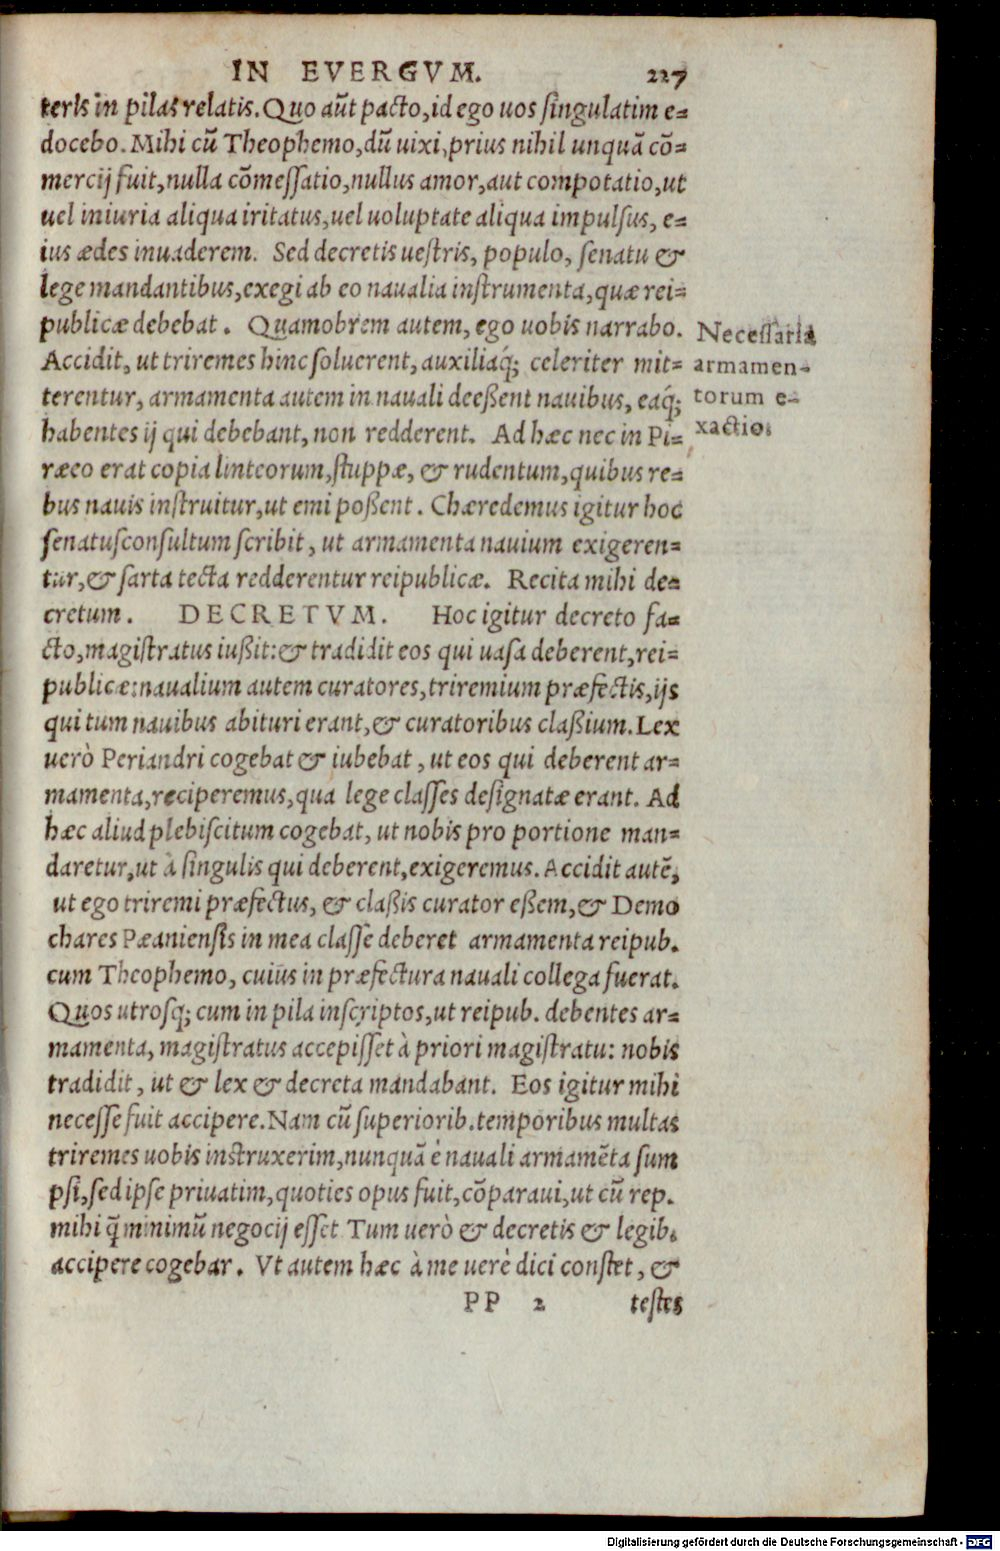 IN EVERGVM. 227
teris in pilas relatis. Quo aũt pacto, id ego uos singulatim e-
docebo. Mihi cũ Theophemo, dũ uixi, prius nihil unquã cõ-
mercij fuit, nulla cõmessatio, nullus amor, aut compotatio, ut
uel iniuria aliqua iritatus, uel uoluptate aliqua impulsus, e-
ius ædes inuaderem. Sed decretis uestris, populo, senatu &
lege mandantibus, exegi ab eo naualia instrumenta, quæ rei-
publicæ debebat. Quamobrem autem, ego uobis narrabo.
Accidit, ut triremes hinc soluerent, auxiliaq́; celeriter mit-
terentur, armamenta autem in nauali deeßent nauibus, eaq́;
habentes ij qui debebant, non redderent. Ad hæc nec in Pi-
ræeo erat copia linteorum, stuppæ, & rudentum, quibus re-
bus nauis instruitur, ut emi poßent. Chæredemus igitur hoc
senatusconsultum scribit, ut armamenta nauium exigeren-
tur, & sarta tecta redderentur reipublicæ. Recita mihi de-
cretum. DECRETVM. Hoc igitur decreto fa-
cto, magistratus iußit: & tradidit eos qui uasa deberent, rei-
publicæ: naualium autem curatores, triremium præfectis, ijs
qui tum nauibus abituri erant, & curatoribus claßium. Lex
uerò Periandri cogebat & iubebat, ut eos qui deberent ar-
mamenta, reciperemus, qua lege classes designatæ erant. Ad
hæc aliud plebiscitum cogebat, ut nobis pro portione man-
daretur, ut à singulis qui deberent, exigeremus. Accidit autẽ,
ut ego triremi præfectus, & claßis curator eßem, & Demo
chares Pæaniensis in mea classe deberet armamenta reipub.
cum Theophemo, cuius in præfectura nauali collega fuerat.
Quos utrosq; cum in pila inscriptos, ut reipub. debentes ar-
mamenta, magistratus accepisset à priori magistratu: nobis
tradidit, ut & lex & decreta mandabant. Eos igitur mihi
necesse fuit accipere. Nam cũ superiorib. temporibus multas
triremes uobis instruxerim, nunquã è nauali armamẽta sum
psi, sed ipse priuatim, quoties opus fuit, cõparaui, ut cũ rep.
mihi q̃ minimũ negocij esset Tum uerò & decretis & legib.
accipere cogebar. Vt autem hæc à me uerè dici constet, &
PP 2 testes
Necessaria
armamen-
torum e-
xactio.
Digitalisierung gefördert durch die Deutsche Forschungsgemeinschaft - DFG